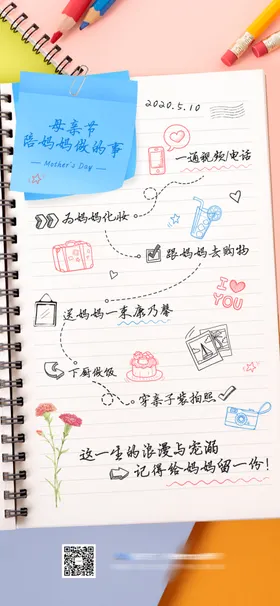 母亲节
陪妈妈做的事
— Mother's Day —
2020.5.10
一通视频/电话
为妈妈化妆
跟妈妈去购物
I ♡ YOU
送妈妈一束康乃馨
下厨做饭
穿亲子装拍照
这一生的浪漫与宠溺
记得给妈妈留一份!